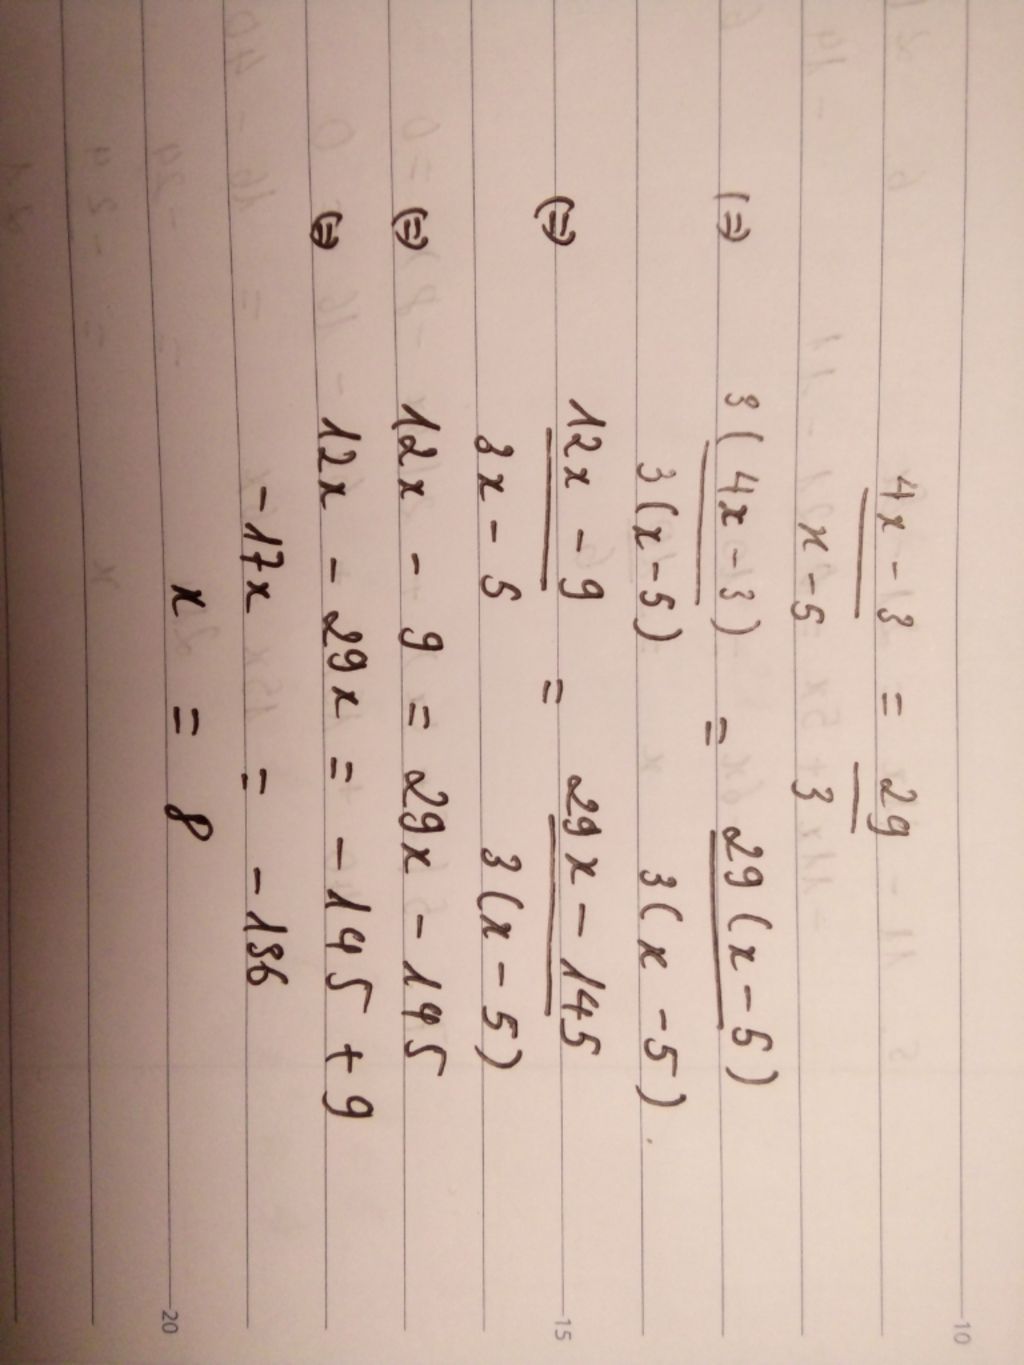 4x - 3 = 29
x - 5 3
(=) 3(4x - 3) = 29(x - 5)
3(x - 5) 3(x - 5).
(=) 12x - 9 = 29x - 145
3x - 5 3(x - 5)
(=) 12x - 9 = 29x - 145
(=) 12x - 29x = - 145 + 9
- 17x = - 136
x = 8
10
15
20